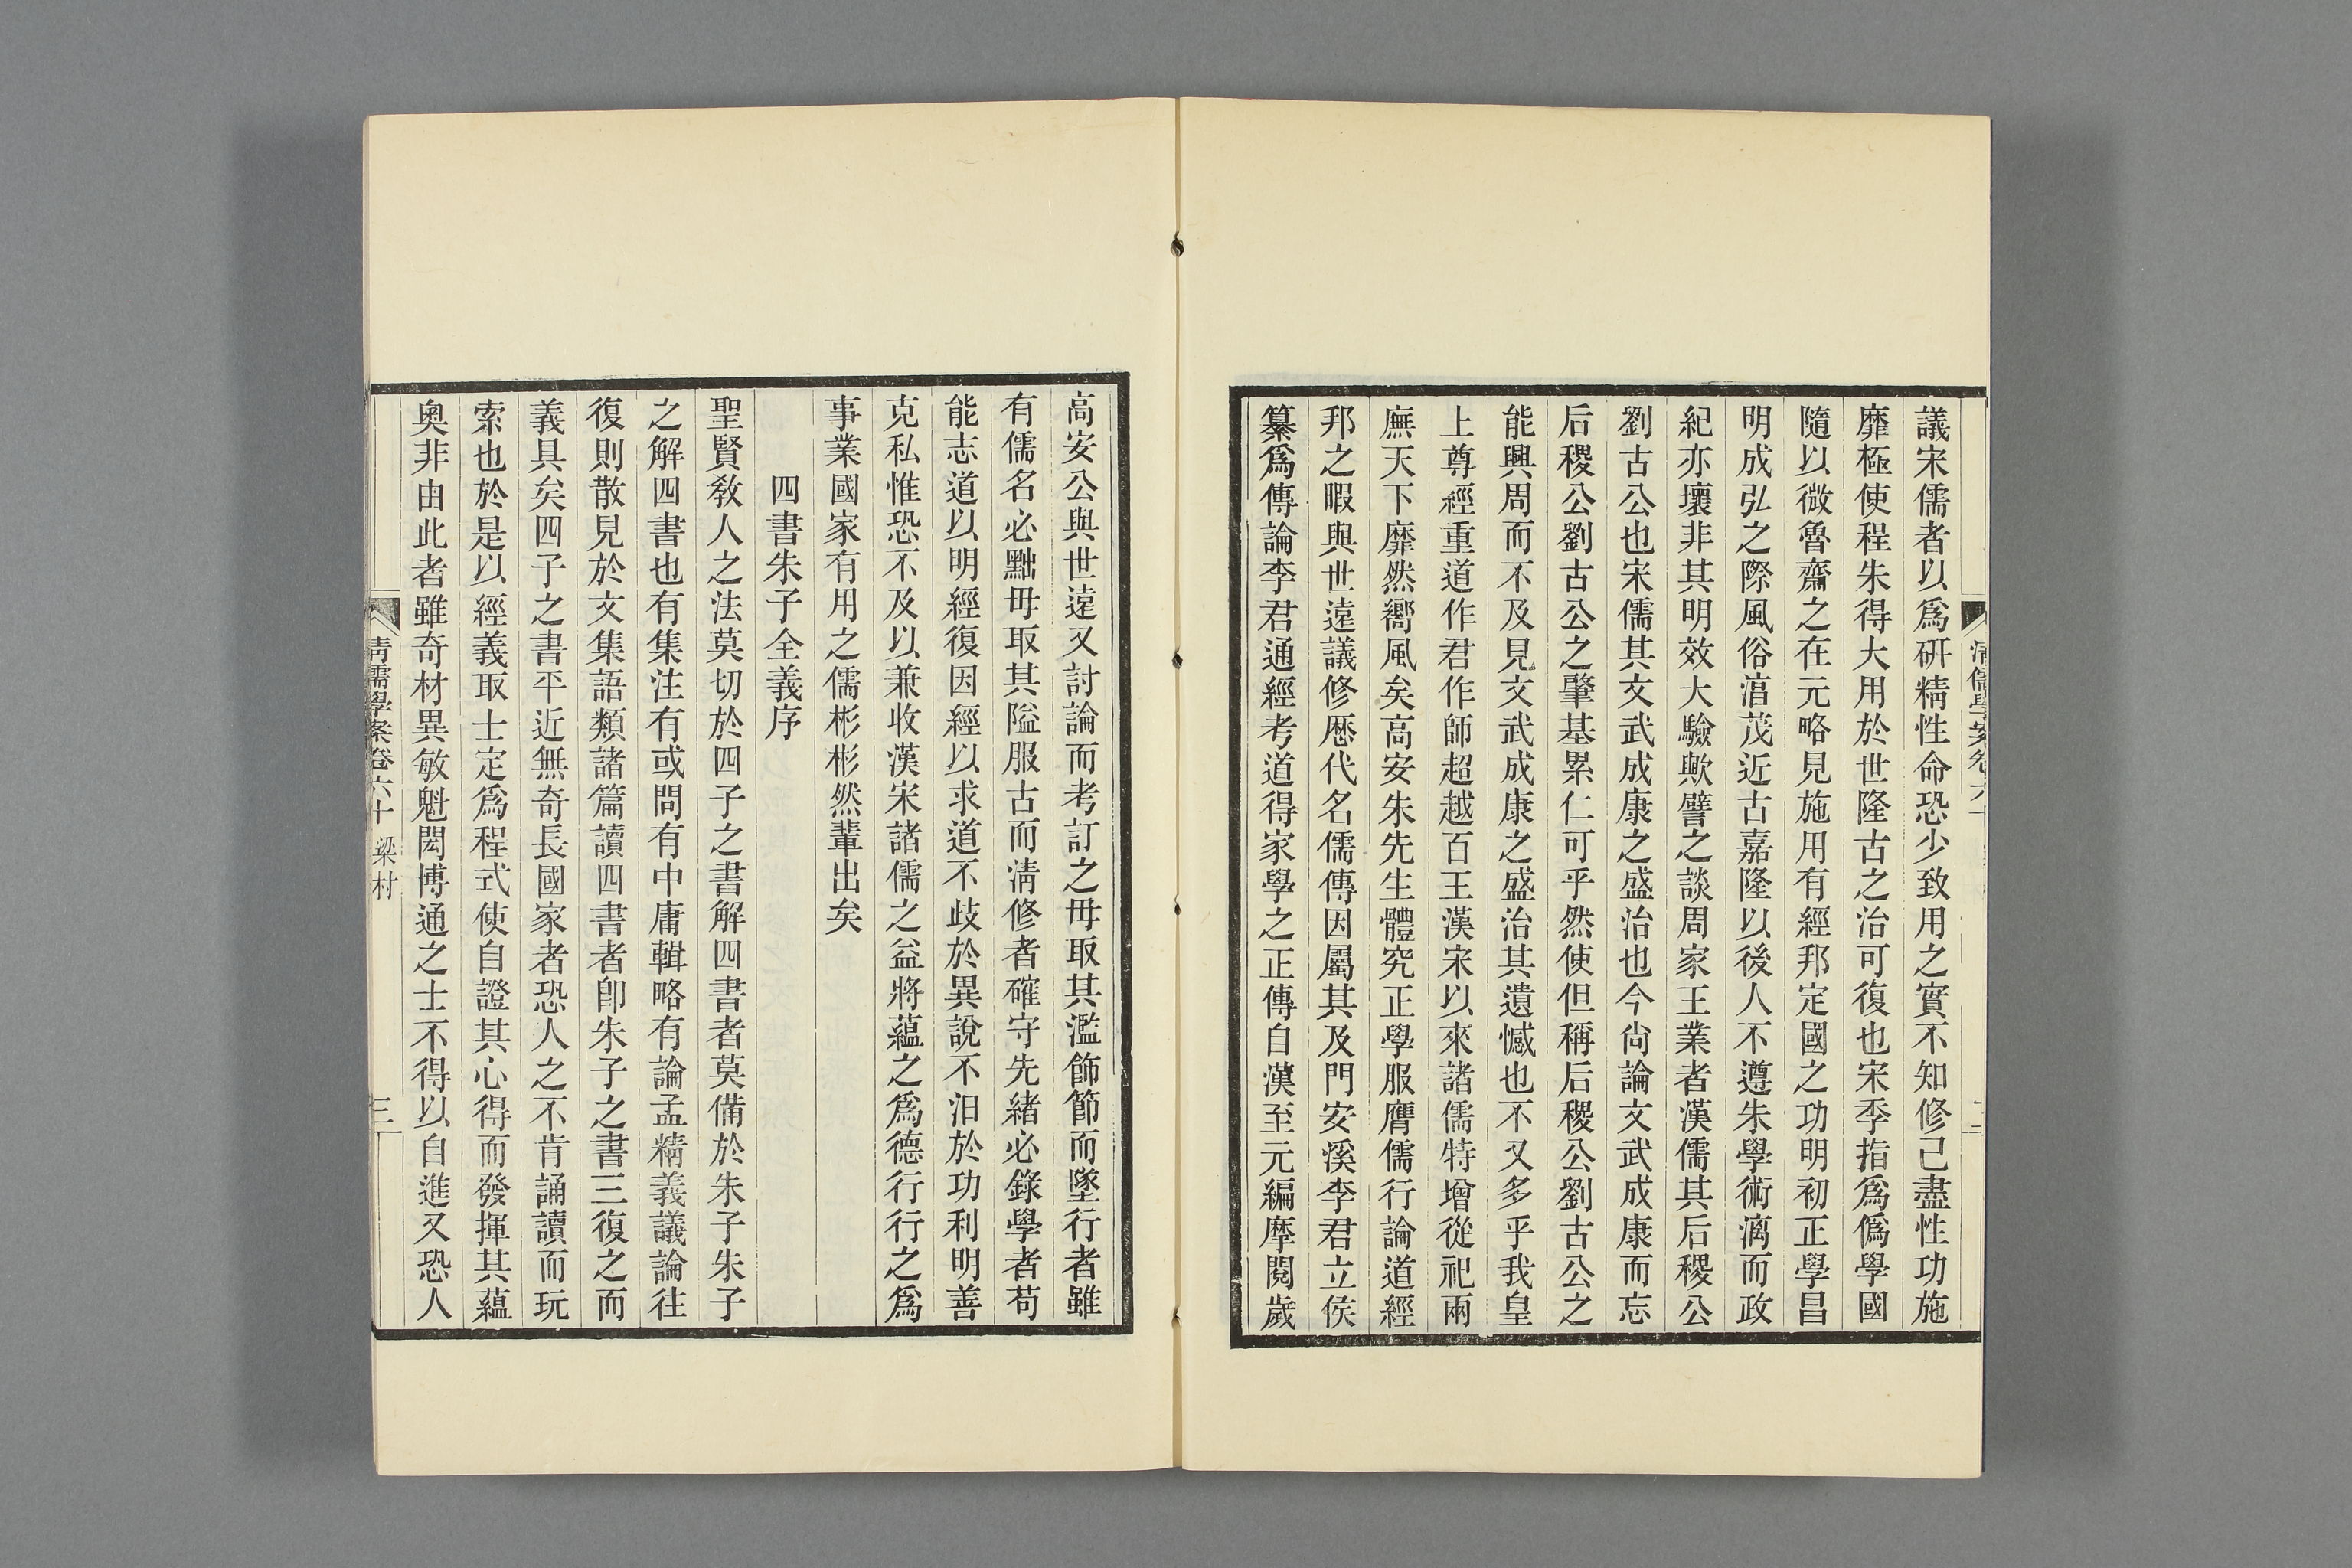 議宋儒者以爲研精性命恐少致用之實不知修己盡性功施
靡極使程朱得大用於世隆古之治可復也宋季指爲僞學國
隨以微魯齋之在元略見施用有經邦定國之功明初正學昌
明成弘之際風俗湻茂近古嘉隆以後人不遵朱學術漓而政
紀亦壞非其明效大驗歟譬之談周家王業者漢儒其后稷公
劉古公也宋儒其文武成康之盛治也今尙論文武成康而忘
后稷公劉古公之肇基累仁可乎然使但稱后稷公劉古公之
能興周而不及見文武成康之盛治其遺憾也不又多乎我皇
上尊經重道作君作師超越百王漢宋以來諸儒特增從祀兩
廡天下靡然嚮風矣高安朱先生體究正學服膺儒行論道經
邦之暇與世遠議修歷代名儒傳因屬其及門安溪李君立侯
纂爲傳論李君通經考道得家學之正傳自漢至元編摩閱歲
高安公與世遠又討論而考訂之毋取其濫飾節而墜行者雖
有儒名必黜毋取其隘服古而淸修者確守先緒必錄學者苟
能志道以明經復因經以求道不歧於異說不汨於功利明善
克私惟恐不及以兼收漢宋諸儒之益將蘊之爲德行行之爲
事業國家有用之儒彬彬然輩出矣
四書朱子全義序
聖賢敎人之法莫切於四子之書解四書者莫備於朱子朱子
之解四書也有集注有或問有中庸輯略有論孟精義議論往
復則散見於文集語類諸篇讀四書者卽朱子之書三復之而
義具矣四子之書平近無奇長國家者恐人之不肯誦讀而玩
索也於是以經義取士定爲程式使自證其心得而發揮其蘊
奧非由此者雖奇材異敏魁閎博通之士不得以自進又恐人
淸儒學案卷六十 梁村
三